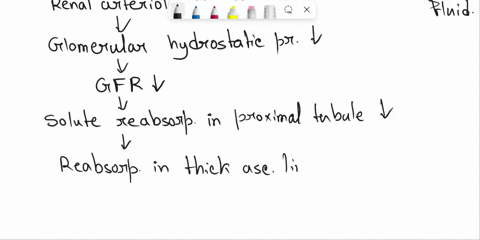 Renal arteriol
Fluid.
↓
Glomerular hydrostatic pr. ↓
↓
GFR ↓
↓
Solute reabsorp in proximal tubule ↓
↓
Reabsorp. in thick asc. li